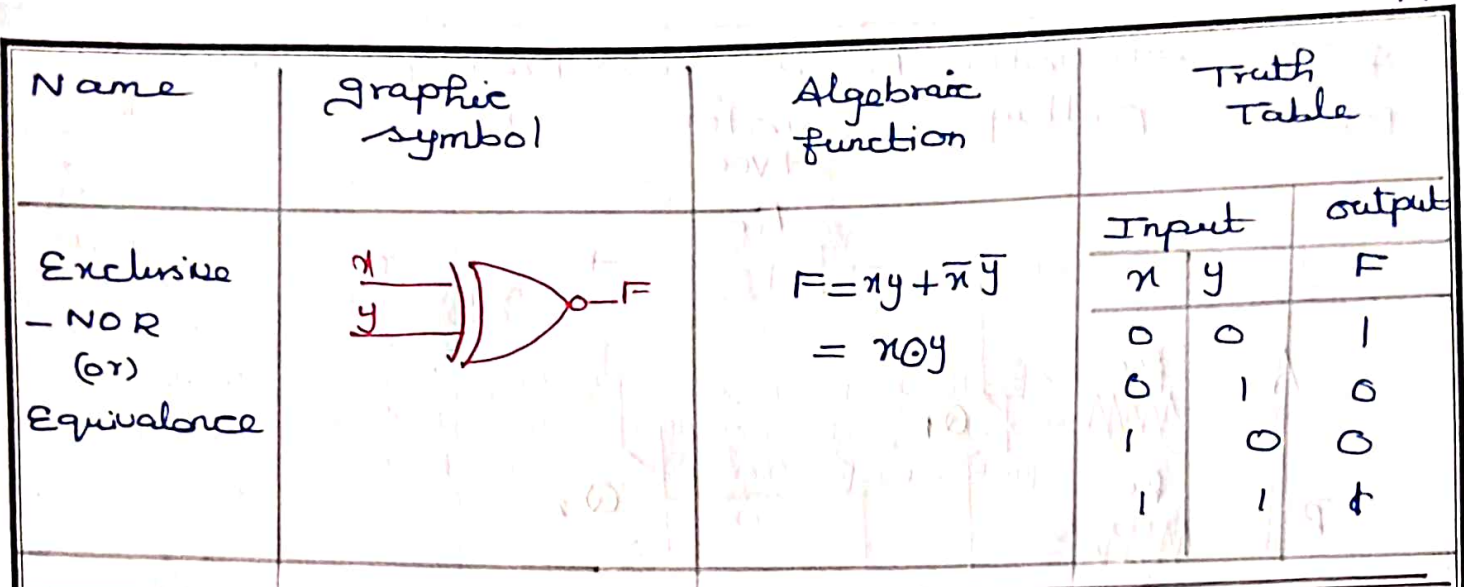 Name
graphic
symbol
Algebraic
function
Truth
Table
Exclusive
- NOR
(or)
Equivalence
x
y
F
F=xy+x̅ y̅
= x⊙y
Input output
x y F
0 0 1
0 1 0
1 0 0
1 1 1